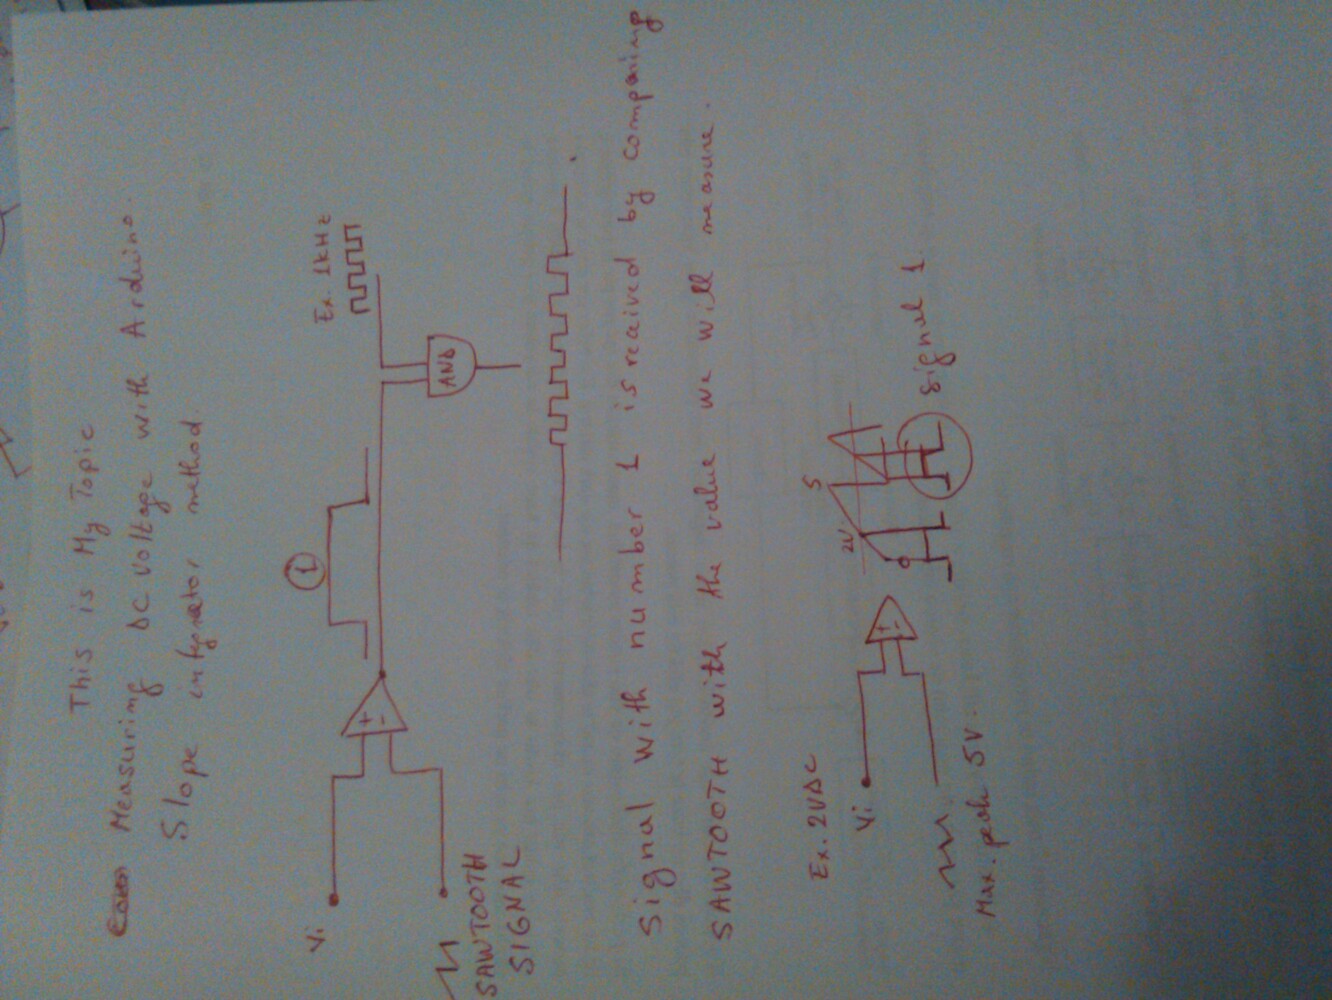 This is My Topic
Measuring DC voltage with Arduino.
Slope integrator method.
1
Ex. 1kHz
Vi
+
-
AND
SAWTOOTH
SIGNAL
Signal with number 1 is received by comparing
SAWTOOTH with the value we will measure.
Ex. 2VDC
2V
5
Vi
+
-
Signal 1
Max. peak 5V.